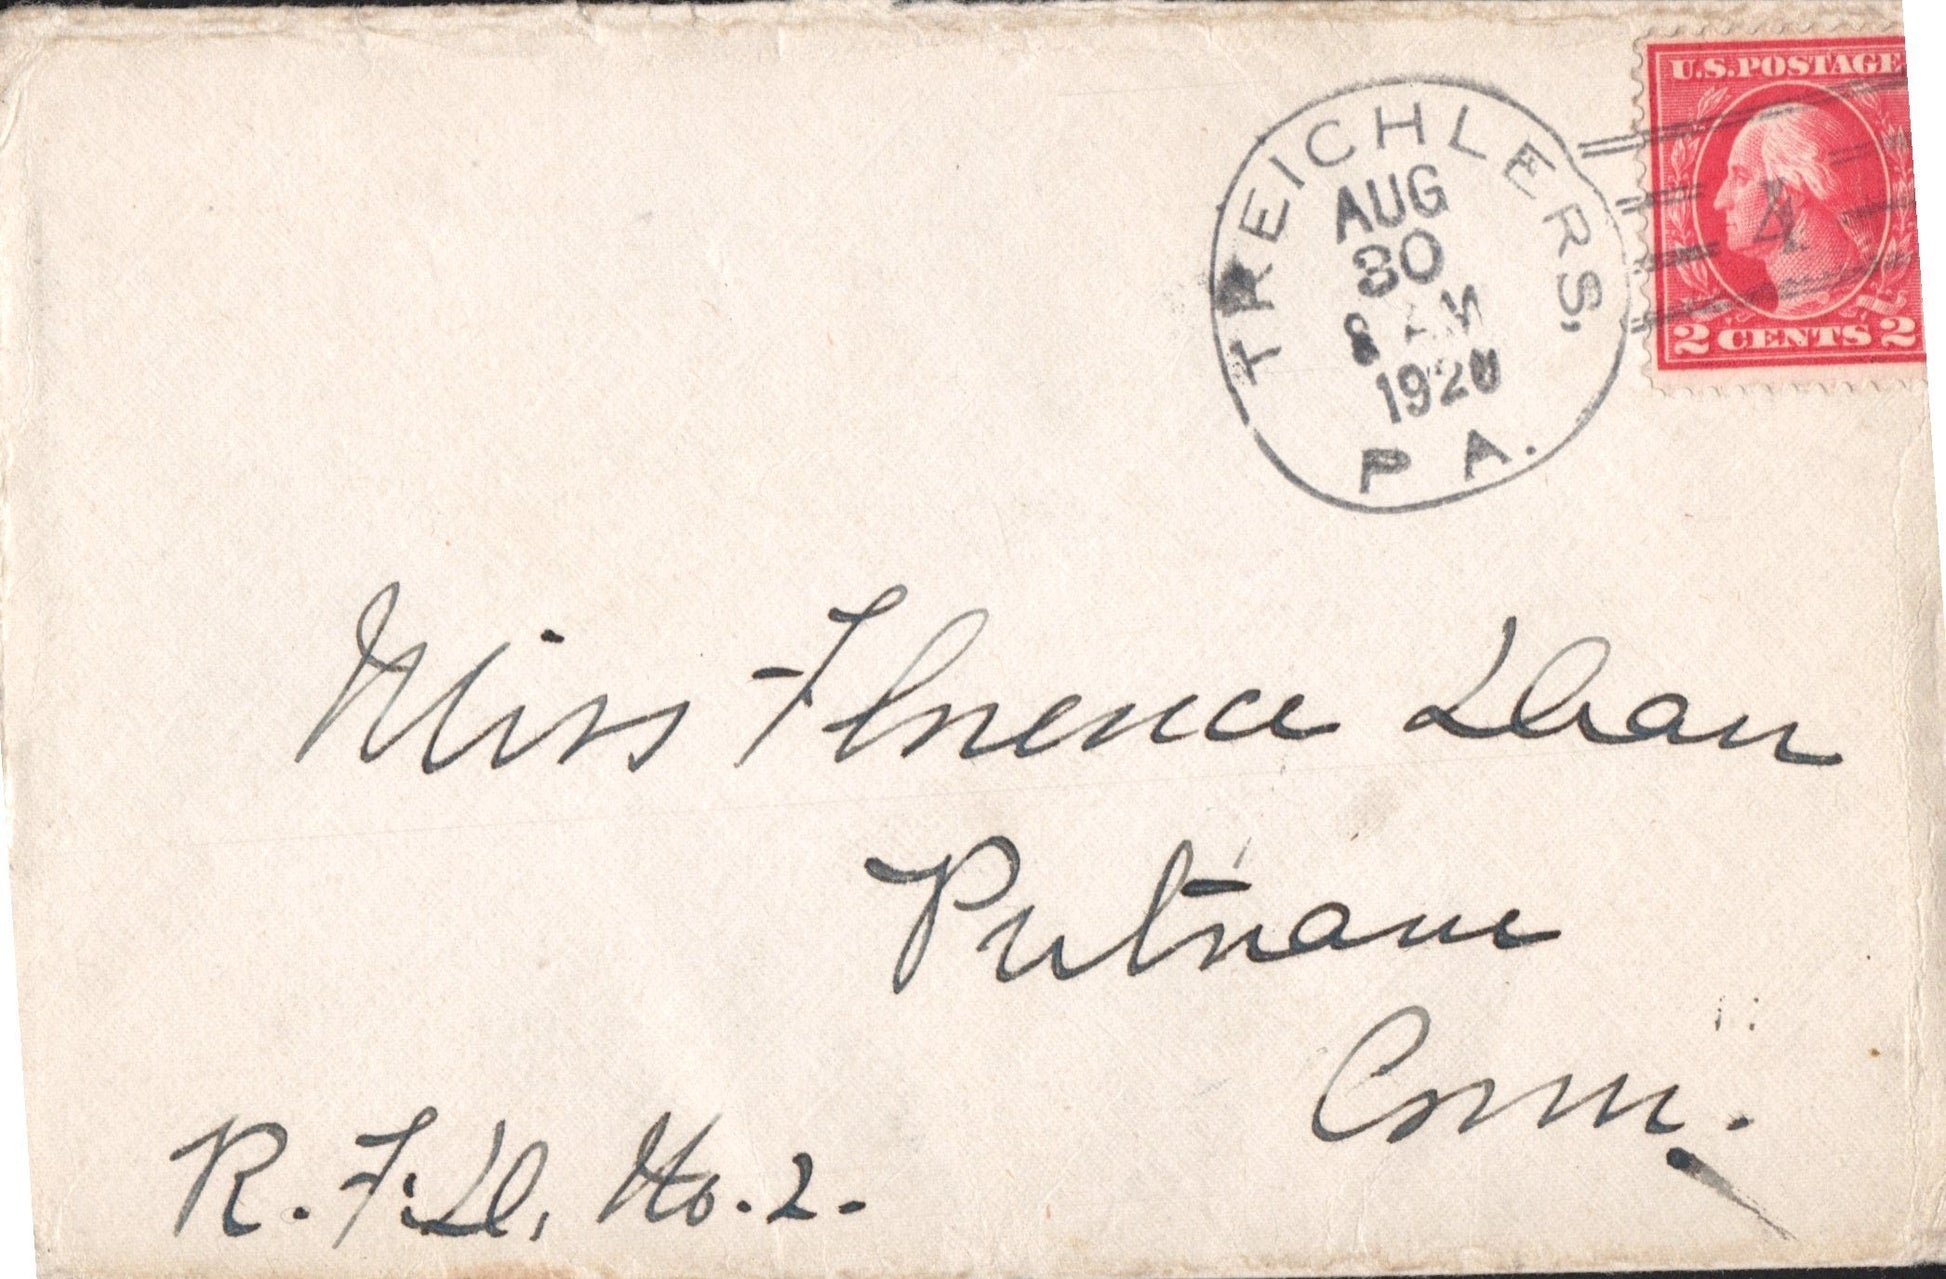 U.S. POSTAGE
2 CENTS 2
4
TREICHLERS,
AUG
30
8 AM
1920
PA.
Miss Florence Dean
Putnam
Conn.
R.F.D. No. 2.